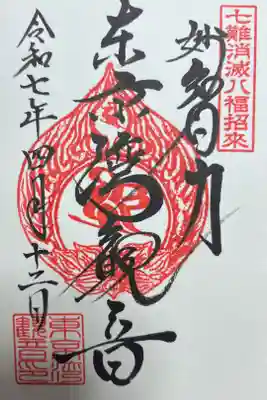 七難消滅八福招来
妙智力
東京湾観音
令和七年四月十二日
東京湾
観音印